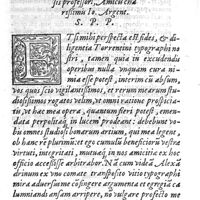 iis professori, Amico cha
rissimo Io. Argent.
S. P. P.
ETsi mihi perspecta est fides, & di
ligentia Torrentini typographi no
stri, tamen quia in excudendis
operibus nulla vnquam cura ni-
mia esse potest, interim cū absum,
vos quas scio vigilantissimos, et rerum mearum
studiosissimos rogatos velim, ve omni ratione prospicia-
tis, ve hac mea opera, quantum fieri potest, emen-
data, perpolitaq; in lucem prodeant: debebunt vo-
bis omnes studiosi bonarum artium, qui mea leget,
ob hanc rē plurimū: et ego cumulū beneficiorū vestra
virtuti, integritati, mutuoq; in nos amicitia ex hoc
officio accessisse arbitrabor. Nā cum videā Alexā
drinum ex vno comate transposito vitio typographi
mira aduersum me cōfingere argumenta et egregia ca
lumniandi ansam arripere, no vulgare prospecto me